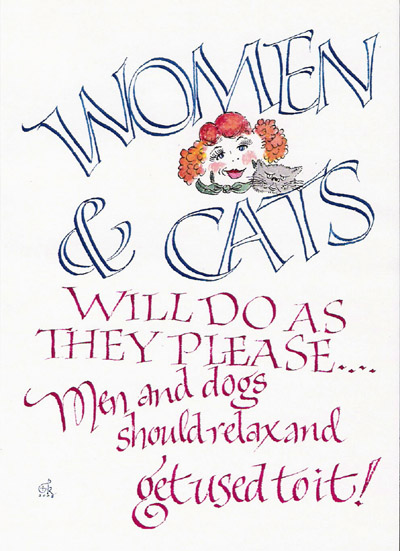 WOMEN
& CATS
WILL DO AS
THEY PLEASE....
Men and dogs
should relax and
get used to it!